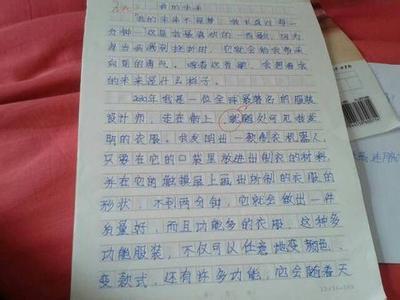 我的未来
"我的未来不是梦，我认真过每一
分钟"这是我最喜欢的一首歌，因为
当我
它就会给我带来
向前的勇气。
我想着我
的未来是什么样子。
年我是一位全球最著名的服装
设计师，走在街上，随处可见我发
明的衣服。我发明出一款制衣机器人，
只要在它的口袋里放进出制衣的材料，
并在它的触摸屏上画出所制的衣服的
形状，不到两分钟，它就会做出一件
质量好，而且功能多的衣服，这种多
功能服装，不仅可以任意地变颜色、
变款式，还有许多功能，它会随着天